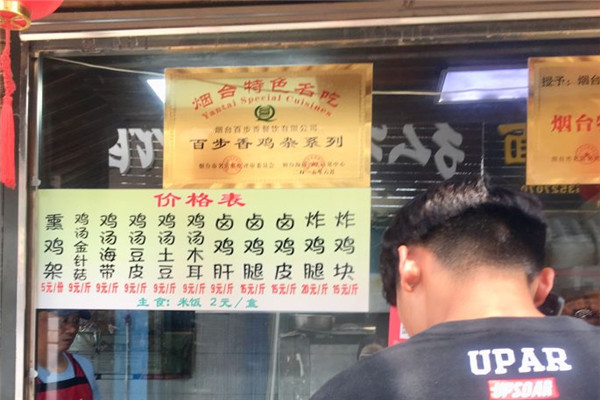 烟台特色名吃
Yantai Special Cuisines
烟台百步香餐饮有限公司
百步香鸡杂系列
授予：烟
烟台特
价格表
熏鸡架 5元/份
鸡汤金针菇 9元/斤
鸡汤海带 9元/斤
鸡汤豆皮 9元/斤
鸡汤土豆 9元/斤
鸡汤木耳 9元/斤
卤鸡肝 9元/斤
卤鸡腿 15元/斤
卤鸡皮 15元/斤
炸鸡腿 20元/斤
炸鸡块 15元/斤
主食：米饭 2元/盒
UPAR
UPSOAR